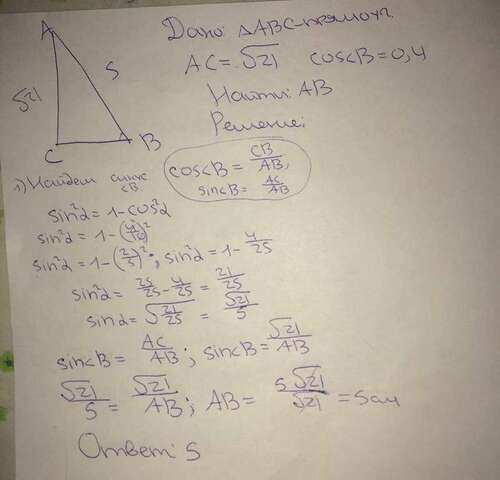 Дано: △ABC-прямоуг.
AC=√21 cos<B=0,4
Найти: AB
Решение:
A
5
√21
C
B
1) Найдем синус <B
cos<B = CB/AB,
sin<B = AC/AB
sin²α=1-cos²α
sin²α=1-(4/10)²
sin²α=1-(2/5)²; sin²α=1-4/25
sin²α= 25/25-4/25= 21/25
sinα=√21/25 = √21/5
sin<B= AC/AB; sin<B= √21/AB
√21/5 = √21/AB; AB= 5√21/√21 = 5см
Ответ: 5